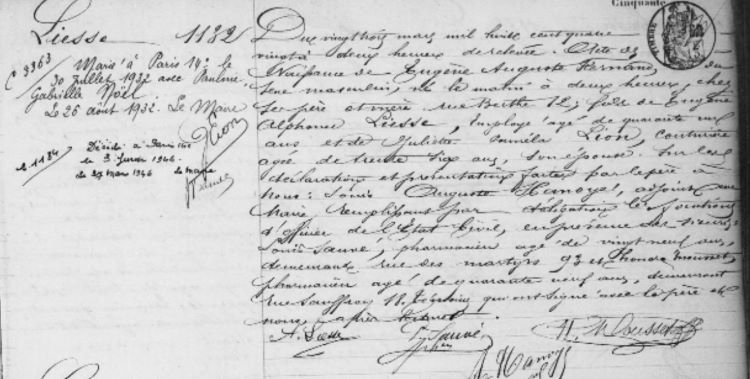 Cinquante
Liesse 1182
C 3363
Marié à Paris 14e le
30 juillet 1932 avec Pauline
Gabrielle Noël.
Le 26 août 1932. Le Maire
Décédé à Paris
le 3 1946.
le 29 mars 1946 le maire
Du vingt trois mars mil huit cent quatre
vingt à deux heures de relevée. Acte de
Naissance de Eugène Auguste Fernand, du
sexe masculin, né le matin à deux heures, chez
ses père et mère rue Berthe 12; fils de Eugène
Alphonse Liesse, employé âgé de quarante un
ans et de Juliette Paméla Lion, couturière
âgée de trente six ans, son épouse. Sur les
déclaration et présentation faites par le père à
nous: Louis Auguste Hanoye, adjoint au
Maire remplissant par délégation les fonctions
d'officier de l'État Civil, en présence des sieurs:
Louis Sauvé, pharmacien âgé de vingt neuf ans,
demeurant rue des martyrs 93 et Honoré Mousset,
pharmacien âgé de quarante neuf ans, demeurant
rue 18. Témoins qui ont signé avec le père et
nous, après lecture
A. Liesse Sauvé H. Mousset
Hanoye